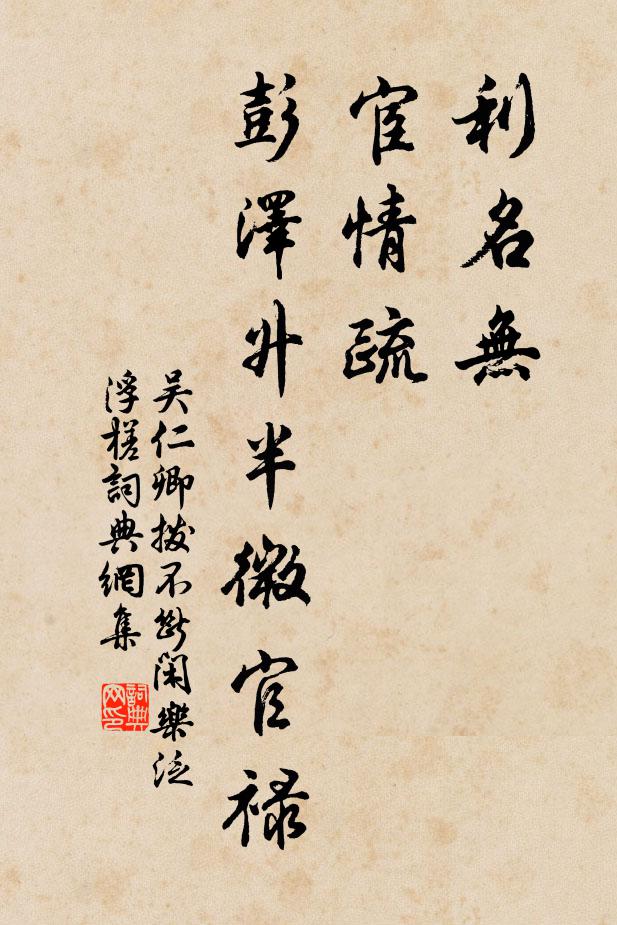 利名無
宦情疏
彭澤升半微官祿
吴仁卿撥不斷閑樂泛
浮槎詞典網集
詞典网印